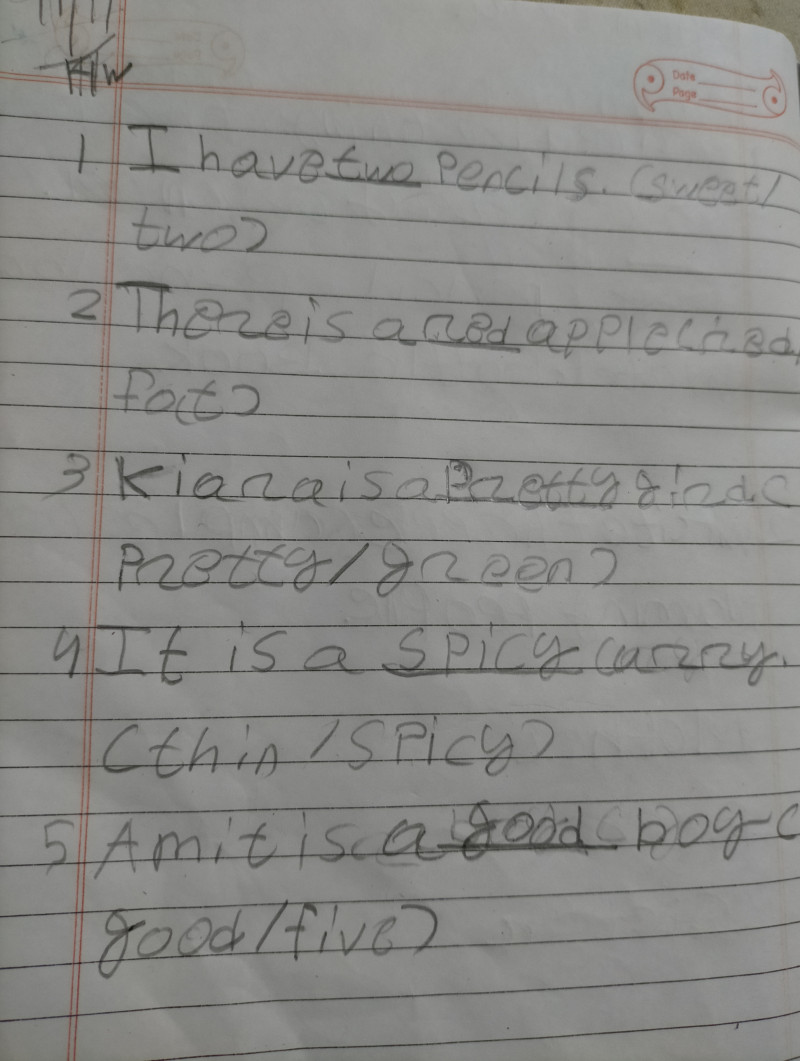 H/W
Date
Page
1 I have two Pencils. (sweet/
two)
2 There is a red apple (red,
fat)
3 Kiara is a Pretty girl. (
Pretty/green)
4 It is a spicy carry.
(thin/spicy)
5 Amit is a good boy (
good/five)